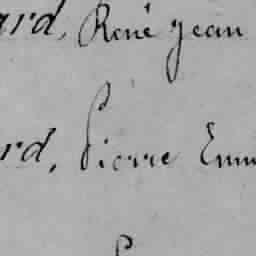 ard, René Jean
rd, Pierre Emm